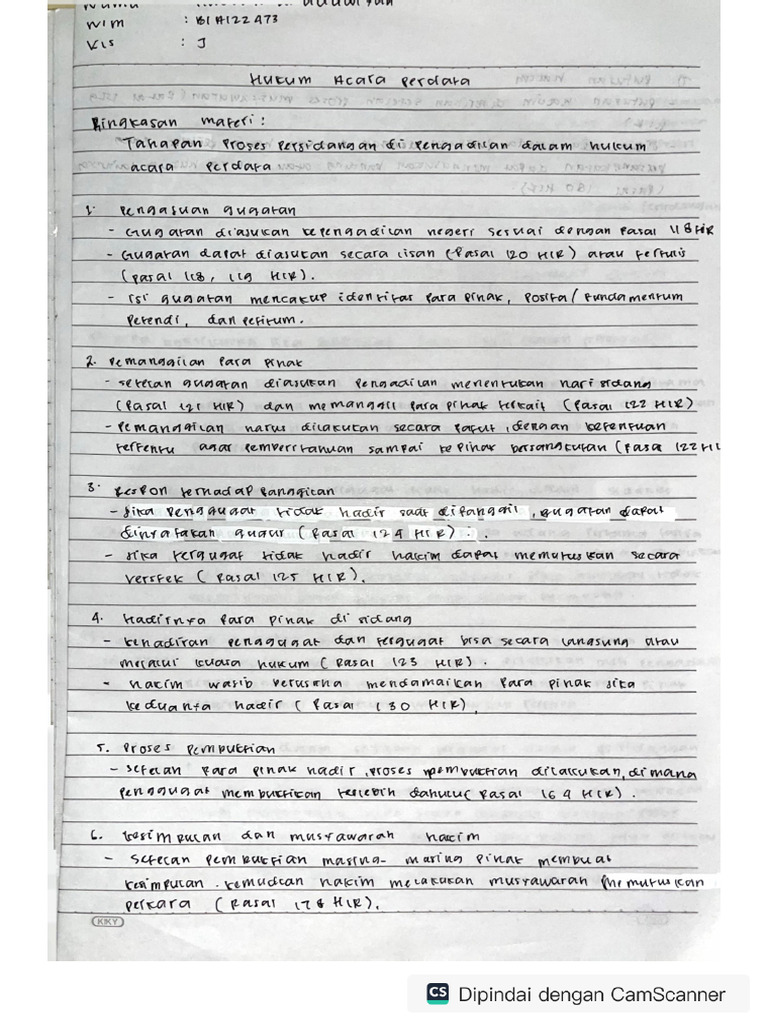 Nama :
NIM : B1A122473
Kls : J
Hukum Acara Perdata
Ringkasan materi :
Tahapan Proses Persidangan di Pengadilan dalam hukum
acara perdata
1. Pengajuan gugatan
- Gugatan diajukan kepengadilan negeri sesuai dengan Pasal 118 HIR
- Gugatan dapat diajukan secara lisan (Pasal 120 HIR) atau tertulis
(pasal 118, 119 HIR).
- isi gugatan mencakup identitas para pihak, Posita / Fundamentum
Petendi, dan petitum.
2. Pemanggilan Para Pihak
- setelah gugatan diajukan Pengadilan menentukan hari sidang
(Pasal 121 HIR) dan memanggil para pihak terkait (Pasal 122 HIR)
- Pemanggilan harus dilakukan secara patut, dengan ketentuan
tertentu agar pemberitahuan sampai ke pihak bersangkutan (Pasal 122 HI
3. Respon terhadap Panggilan
- Jika Penggugat tidak hadir saat dipanggil, gugatan dapat
dinyatakan gugur (Pasal 124 HIR).
- Jika tergugat tidak hadir hakim dapat memutuskan secara
verstek (Pasal 125 HIR).
4. Hadirnya Para Pihak di sidang
- kehadiran penggugat dan tergugat bisa secara langsung atau
melalui kuasa hukum (Pasal 123 HIR).
- hakim wajib berusaha mendamaikan Para pihak jika
keduanya hadir (Pasal 130 HIR).
5. Proses Pembuktian
- setelah para pihak hadir, proses pembuktian dilakukan, di mana
penggugat membuktikan terlebih dahulu (Pasal 164 HIR).
6. Kesimpulan dan musyawarah hakim
- Setelah Pembuktian masing-masing pihak membuat
kesimpulan. kemudian hakim melakukan musyawarah memutuskan
perkara (Pasal 178 HIR).
KKY
CS Dipindai dengan CamScanner